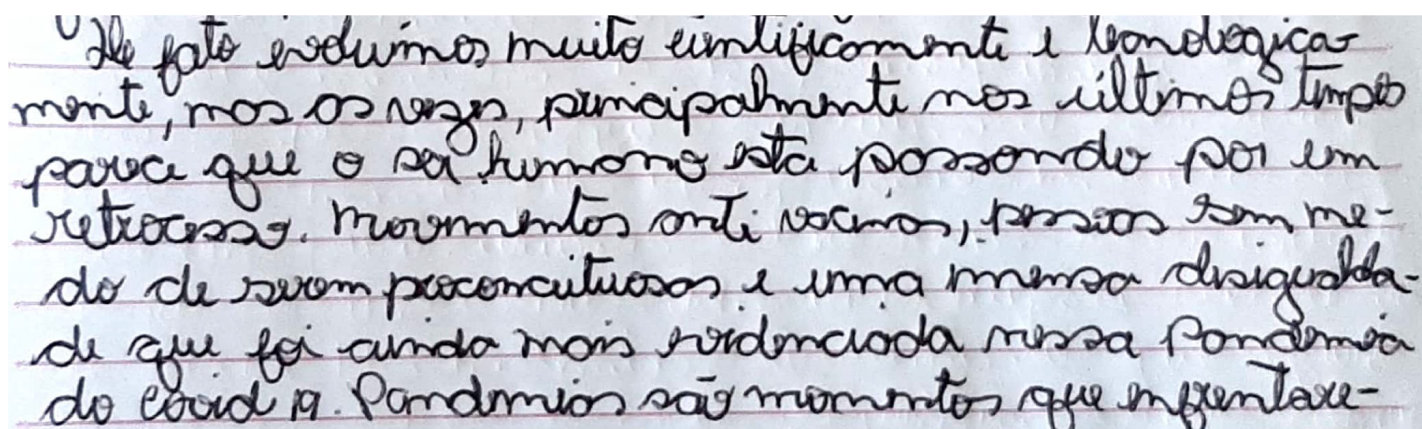 De fato evoluimos muito cientificamente e tecnologica-
mente, mas as vezes, principalmente nos últimos tempos
parece que o ser humano esta passando por um
retrocesso. Movimentos anti vacinas, pessoas sem me-
do de serem preconceituosas e uma imensa desigualda-
de que foi ainda mais evidenciada nessa Pandemia
do Covid 19. Pandemias são momentos que enfrentare-